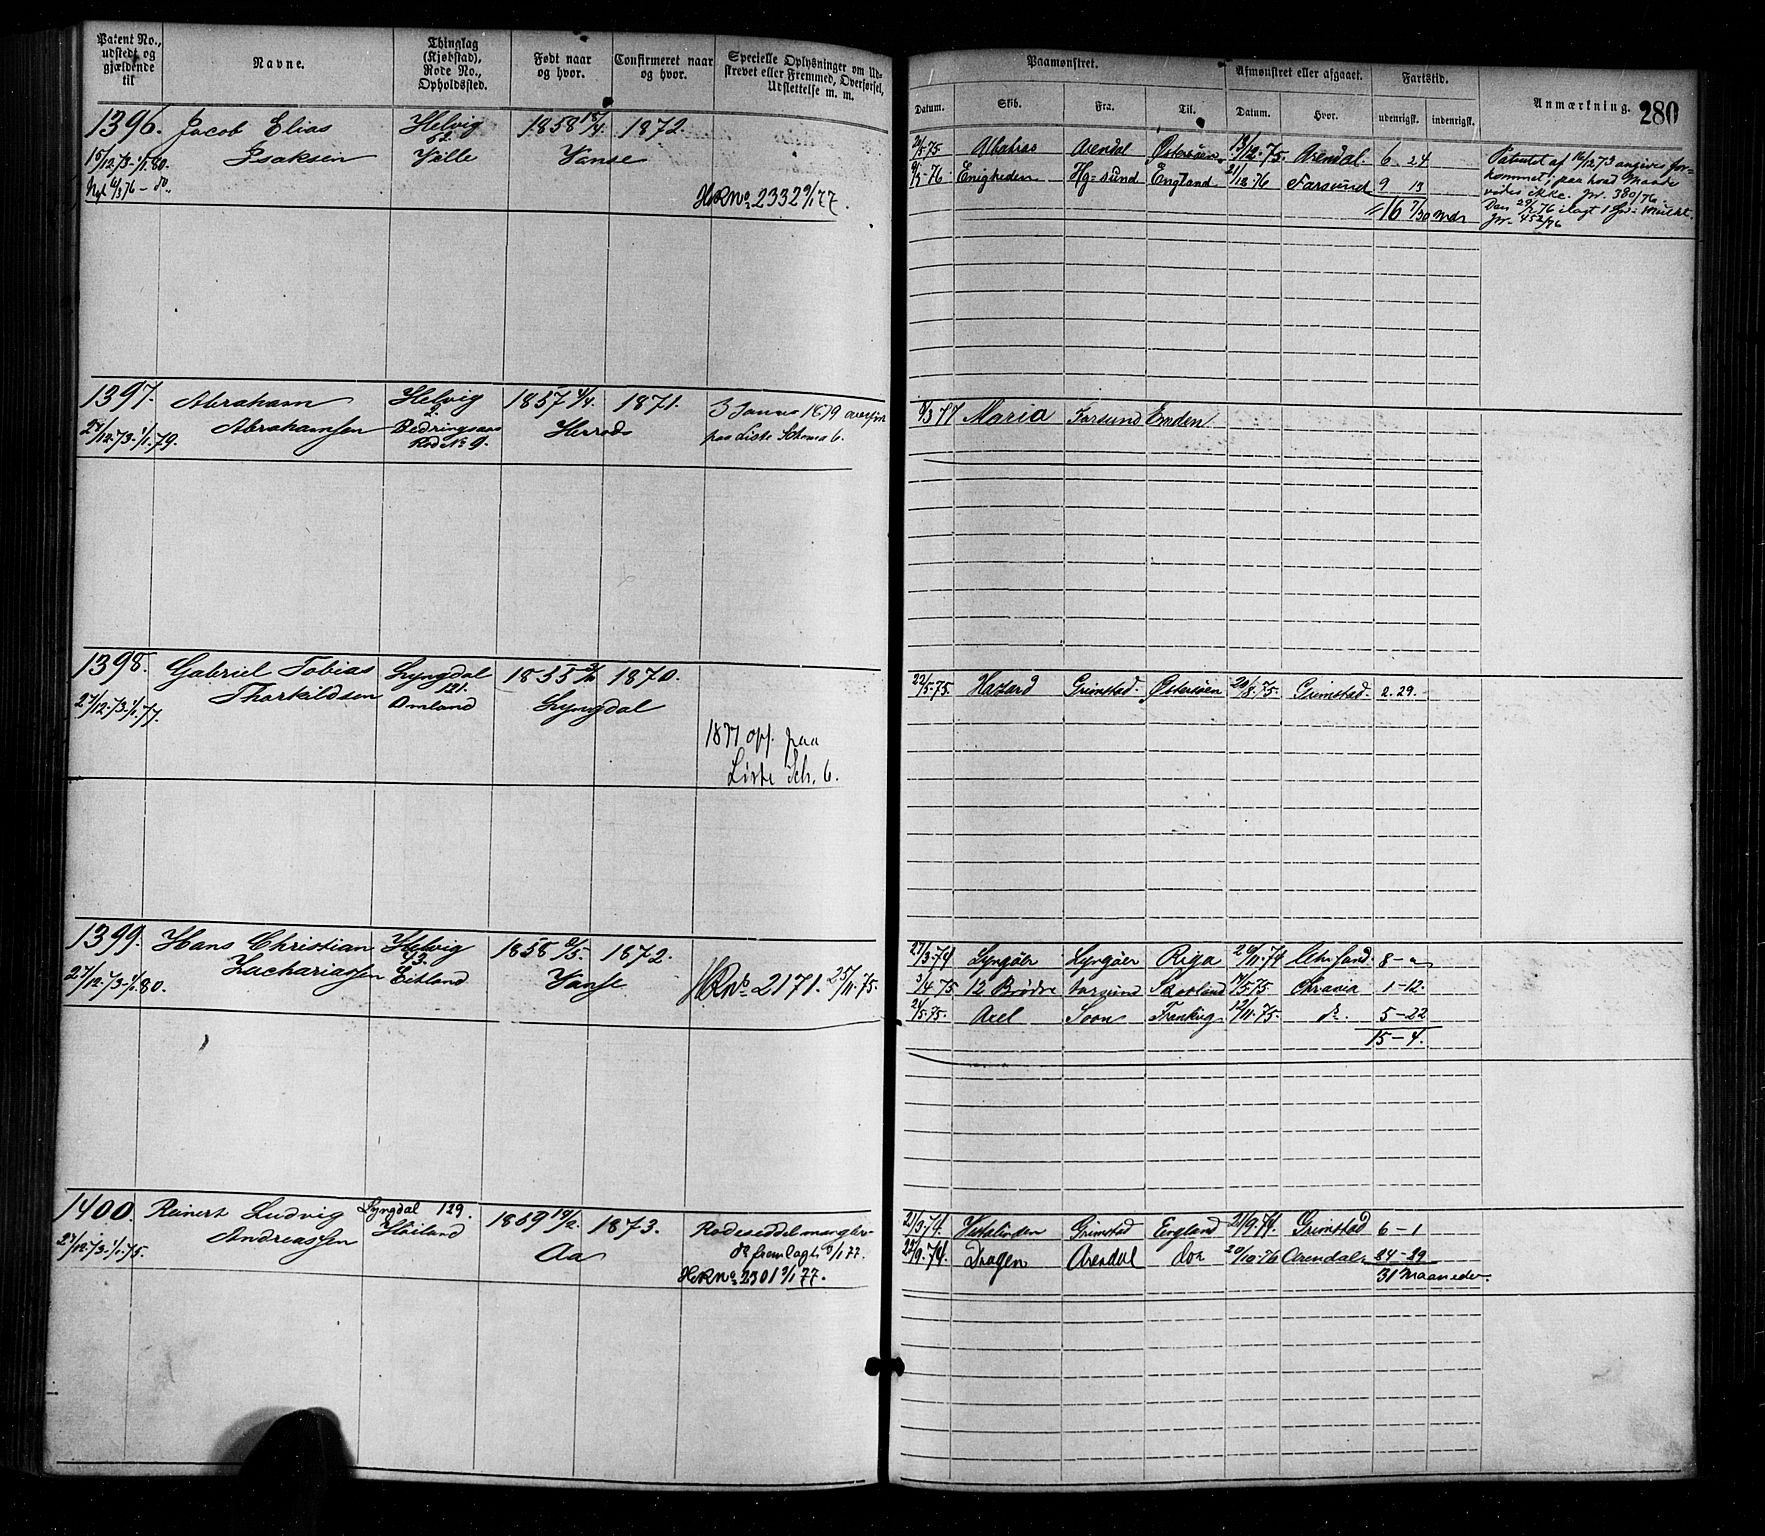 Patent No., udstedt og gjældende til
Navne.
Thinglag (Kjøbstad), Rode No., Opholdssted.
Født naar og hvor.
Confirmeret naar og hvor.
Specielle Oplysninger om Udstrevet eller Fremmed, Overførsel, Udslettelse m. m.
Paamønstret.
Afmønstret eller afgaaet.
Fartstid.
Anmærkning.
280
Datum.
Skib.
Fra.
Til.
Datum.
Hvor.
udenrigsk.
indenrigsk.
1396. Jacob Elias Helvig 1858 18/4. 1872.
52
15/12.73-1/1.80. Isaksen Ville Vanse
Nyt 6/3 76 - 80.
HRNo 2332 9/1 77.
75 Arendal Østersøen 19/12.75. Arendal. 6 24
76 Enigheden Hg=sund England 21/12 76 Farsund 9 13
16 7/30 Mdr
Patentet af 16/12 73 angives for-
kommet; paa hvad Maade
vides ikke. Jr. 380/76.
Den 29/2 76 ilagt 1 Spd. Mulkt.
Jr. 452/76
1397. Abraham Helvig 1857 4/4. 1871.
2.
27/12.73-1/1.79. Abrahamsen Rod No 9. Herrods
3 Januar 1879 overført
paa Liste Schema 6.
9/3 77 Maria Farsund Emden
1398. Gabriel Tobias Lyngdal 1855 1870.
121.
27/12.73-1/1.77. Thorkildsen Omland Lyngdal
1877 opf. paa
Liste Sch. 6.
22/5.75. Hazard Grimstad. Østersøen 20/8.75. Grimstad. 2.29.
1399. Hans Christian Helvig 1858 8/5. 1872.
43.
27/12.73-1/1.80. Zachariassen Eitland Vanse
HRNo 2171. 25/11.75.
27/3.74 Lyngøer Lyngøer Riga 20/11.74 Chr.sand 8 - "
3/4.75 12 Brødre Farsund Skotland 7/5.75 Chrania 1-12.
24/5.75. Axel Soon Frankrig 12/11.75. do. 5-22
15-4.
1400. Reinert Ludvig Lyngdal 129. 1859 19/2. 1873.
27/12.73-1/1.75. Andreassen Høiland Aa
Rodeseddel mangler
do fremlagt 9/1 77.
HRNo 2301 9/1 77.
21/3.74. Grimstad England 21/9.74. Grimstad 6-1
22/9.74. Dragen Arendal do 20/10.76 Arendal 24-29
31 Maaneder.